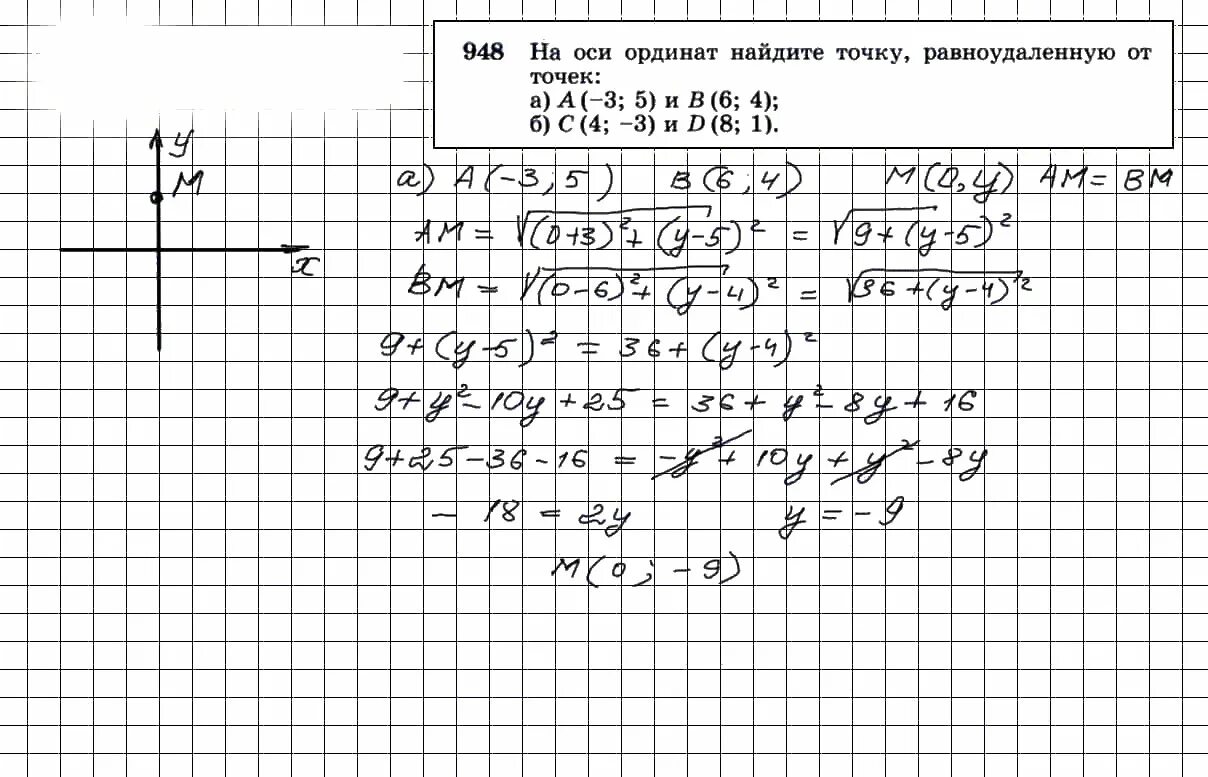 948 На оси ординат найдите точку, равноудаленную от
точек:
а) A (−3; 5) и B (6; 4);
б) C (4; −3) и D (8; 1).
y
M
x
а) A(-3; 5) B(6; 4) M(0, y) AM = BM
AM = √((0+3)² + (y-5)²) = √(9+(y-5)²)
BM = √((0-6)² + (y-4)²) = √(36+(y-4)²)
9+(y-5)² = 36+(y-4)²
9+y²-10y+25 = 36+y²-8y+16
9+25-36-16 = -y²+10y+y²-8y
-18 = 2y y = -9
M(0; -9)